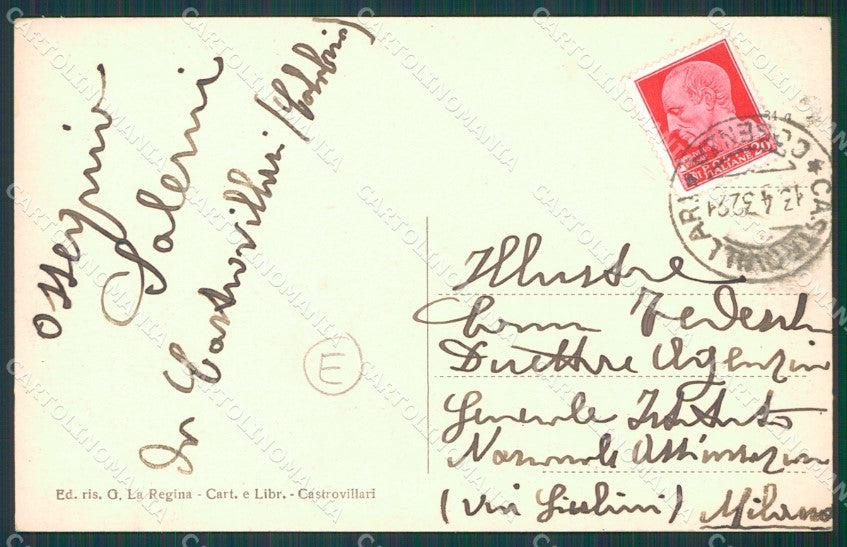 Ossequio
Salerni
Da Castrovillari (Calabria)
E
Ed. ris. G. La Regina - Cart. e Libr. - Castrovillari
POSTE ITALIANE 20
CASTROVILLARI
COSENZA
13.4.32 21
Illustre
Comm Tedeschi
Direttore Agenzia
Generale Istituto
Nazionale Assicurazioni
(via Giulini) Milano
CARTOLINOMANIA